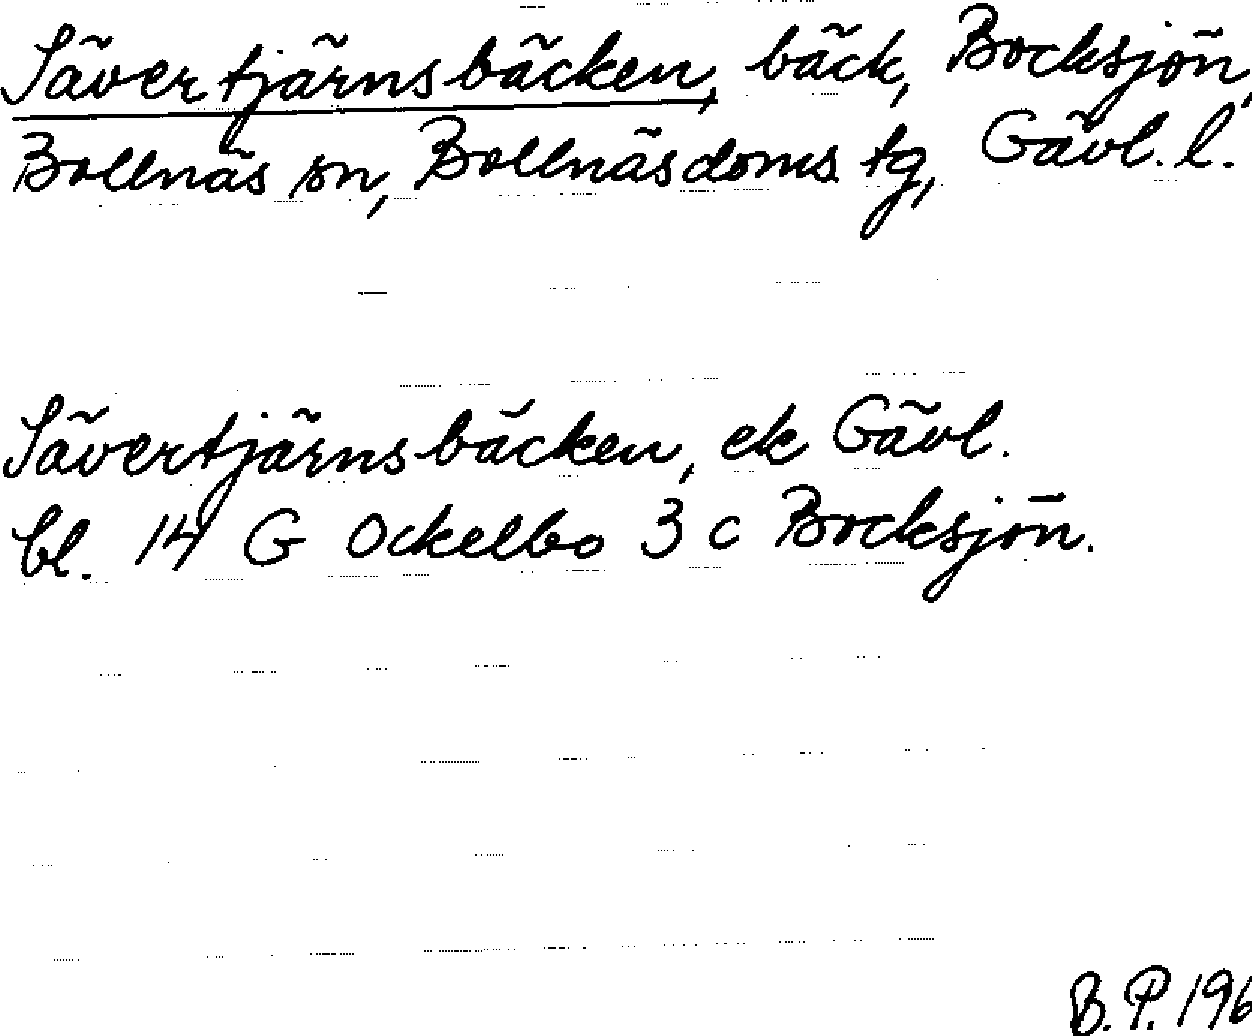 Sävertjärnsbäcken, bäck, Bocksjön,
Bollnäs sn, Bollnäsdoms tg, Gävl. l.
Sävertjärnsbäcken, ek Gävl.
bl. 14 G Ockelbo 3 c Bocksjön.
B. P. 196